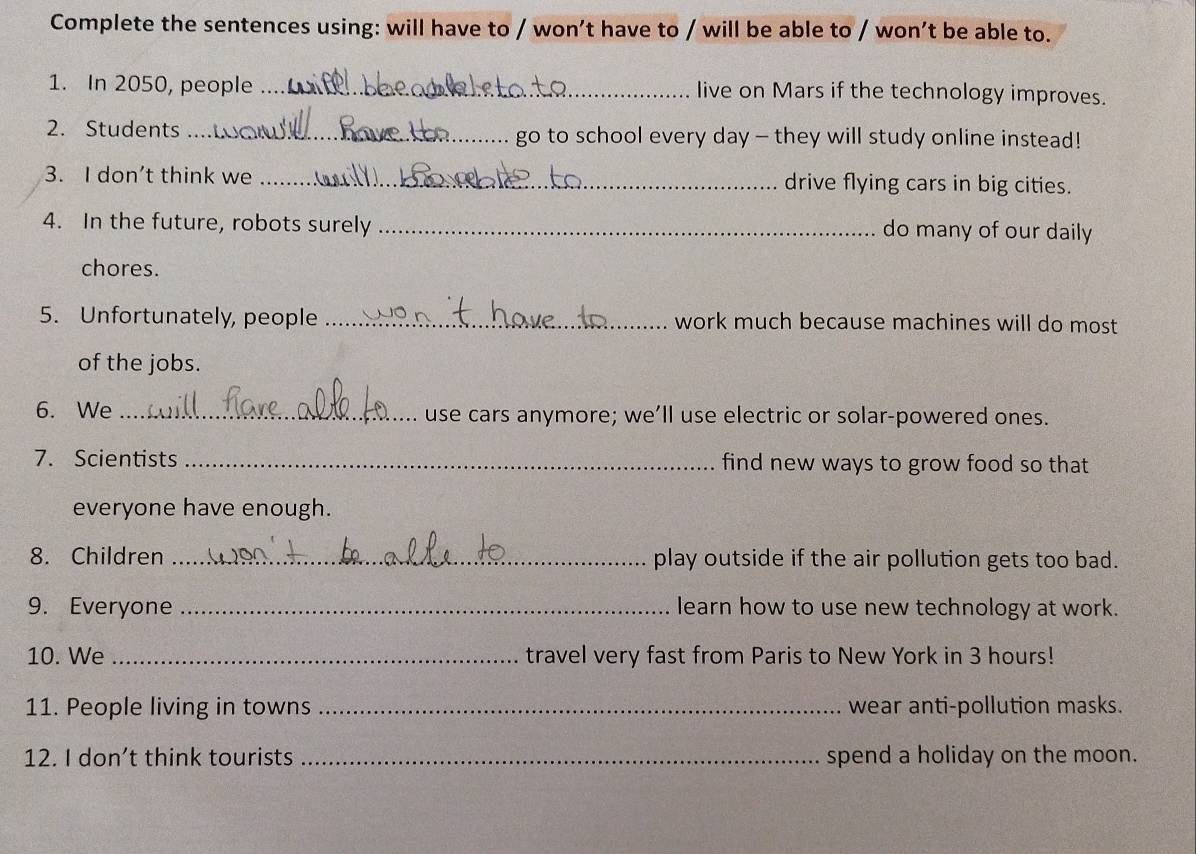 Complete the sentences using: will have to / won't have to / will be able to / won't be able to.
1. In 2050, people .... to ........ live on Mars if the technology improves.
2. Students .... have to ........ go to school every day – they will study online instead!
3. I don't think we ........ will ... to ........ drive flying cars in big cities.
4. In the future, robots surely ........ do many of our daily
chores.
5. Unfortunately, people ........ won't have to ........ work much because machines will do most
of the jobs.
6. We .... will to .... use cars anymore; we'll use electric or solar-powered ones.
7. Scientists ........ find new ways to grow food so that
everyone have enough.
8. Children ..... won't be alle to ........ play outside if the air pollution gets too bad.
9. Everyone ........ learn how to use new technology at work.
10. We ........ travel very fast from Paris to New York in 3 hours!
11. People living in towns ........ wear anti-pollution masks.
12. I don't think tourists ........ spend a holiday on the moon.